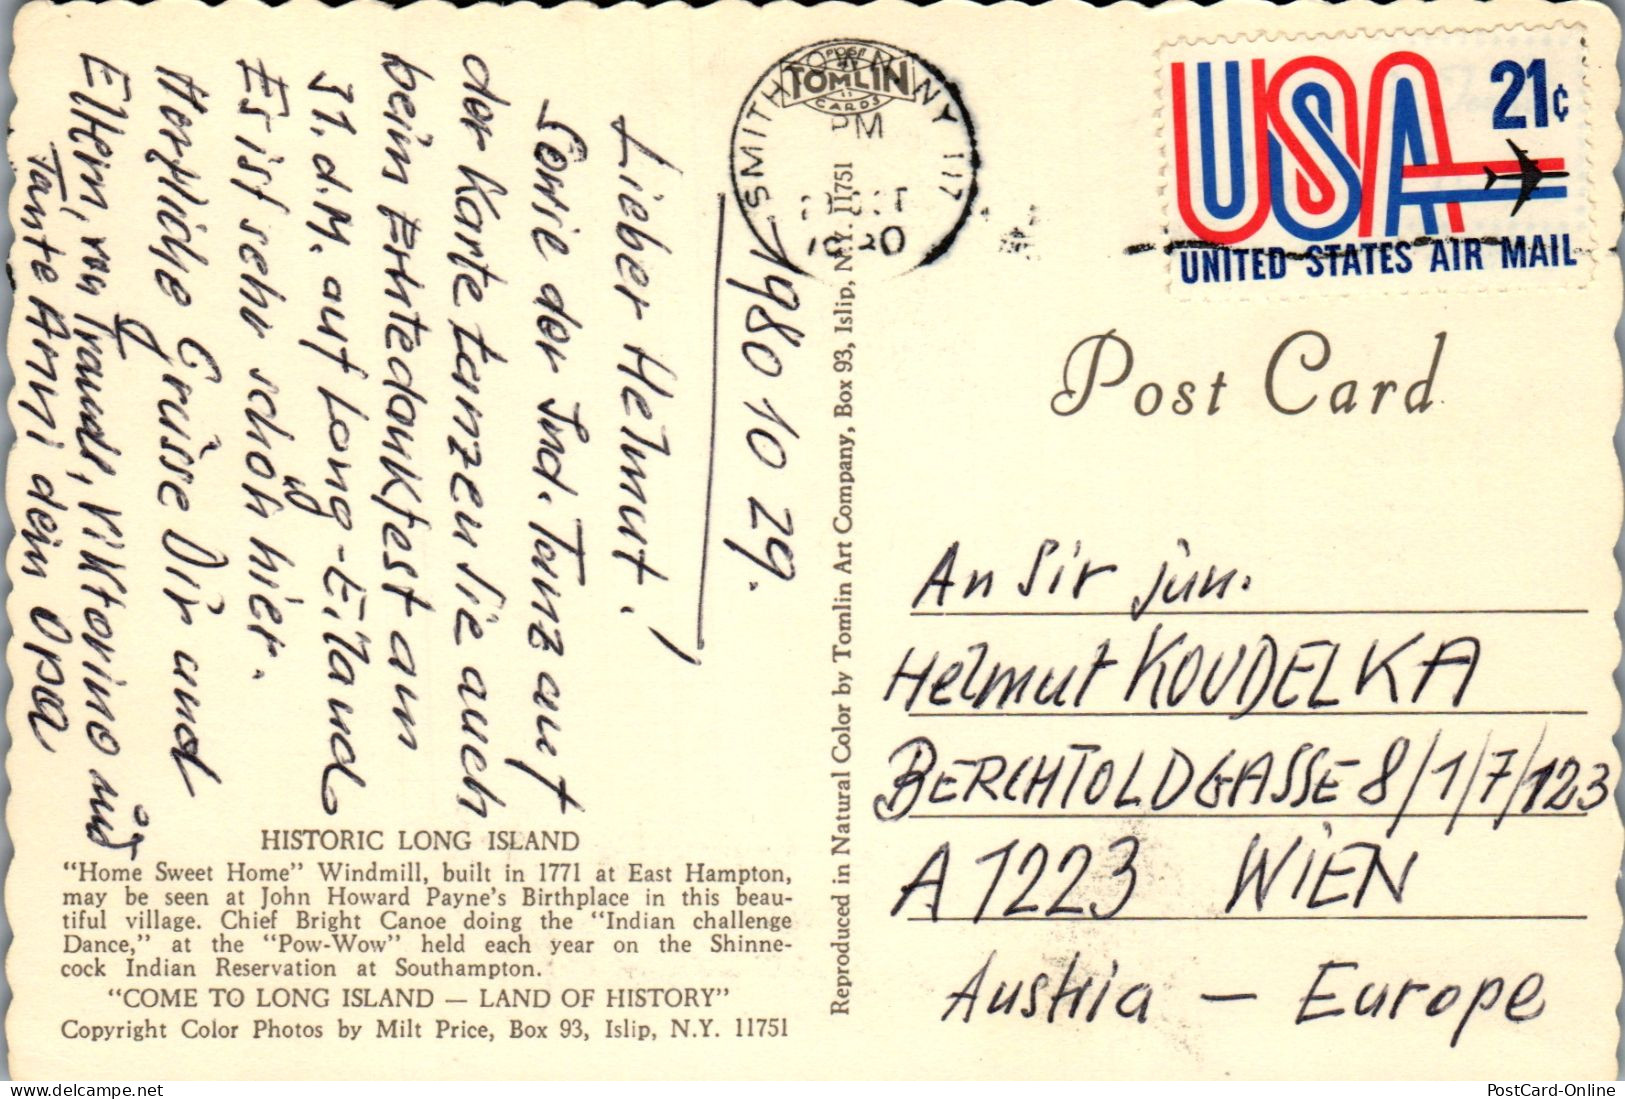 1980 10 29.
Lieber Helmut!
Sowie der Ind. Tanz auf
der Karte tanzen Sie auch
beim Erntedankfest am
31. d. M. auf Long-Eiland
Es ist sehr schön hier.
Herzliche Grüsse Dir und
Eltern, von Traudl, Viktorino und
Tante Anni dein Opa
HISTORIC LONG ISLAND
"Home Sweet Home" Windmill, built in 1771 at East Hampton,
may be seen at John Howard Payne's Birthplace in this beau-
tiful village. Chief Bright Canoe doing the "Indian challenge
Dance," at the "Pow-Wow" held each year on the Shinne-
cock Indian Reservation at Southampton.
"COME TO LONG ISLAND — LAND OF HISTORY"
Copyright Color Photos by Milt Price, Box 93, Islip, N.Y. 11751
Reproduced in Natural Color by Tomlin Art Company, Box 93, Islip, N.Y. 11751
POST
TOMLIN
CARDS
SMITHTOWN NY 117
PM
USA 21c
UNITED STATES AIR MAIL
Post Card
An Sir jun.
Helmut KOUDELKA
BERCHTOLDGASSE 8/1/7/123
A 1223 WIEN
Austria — Europe
PostCard-Online